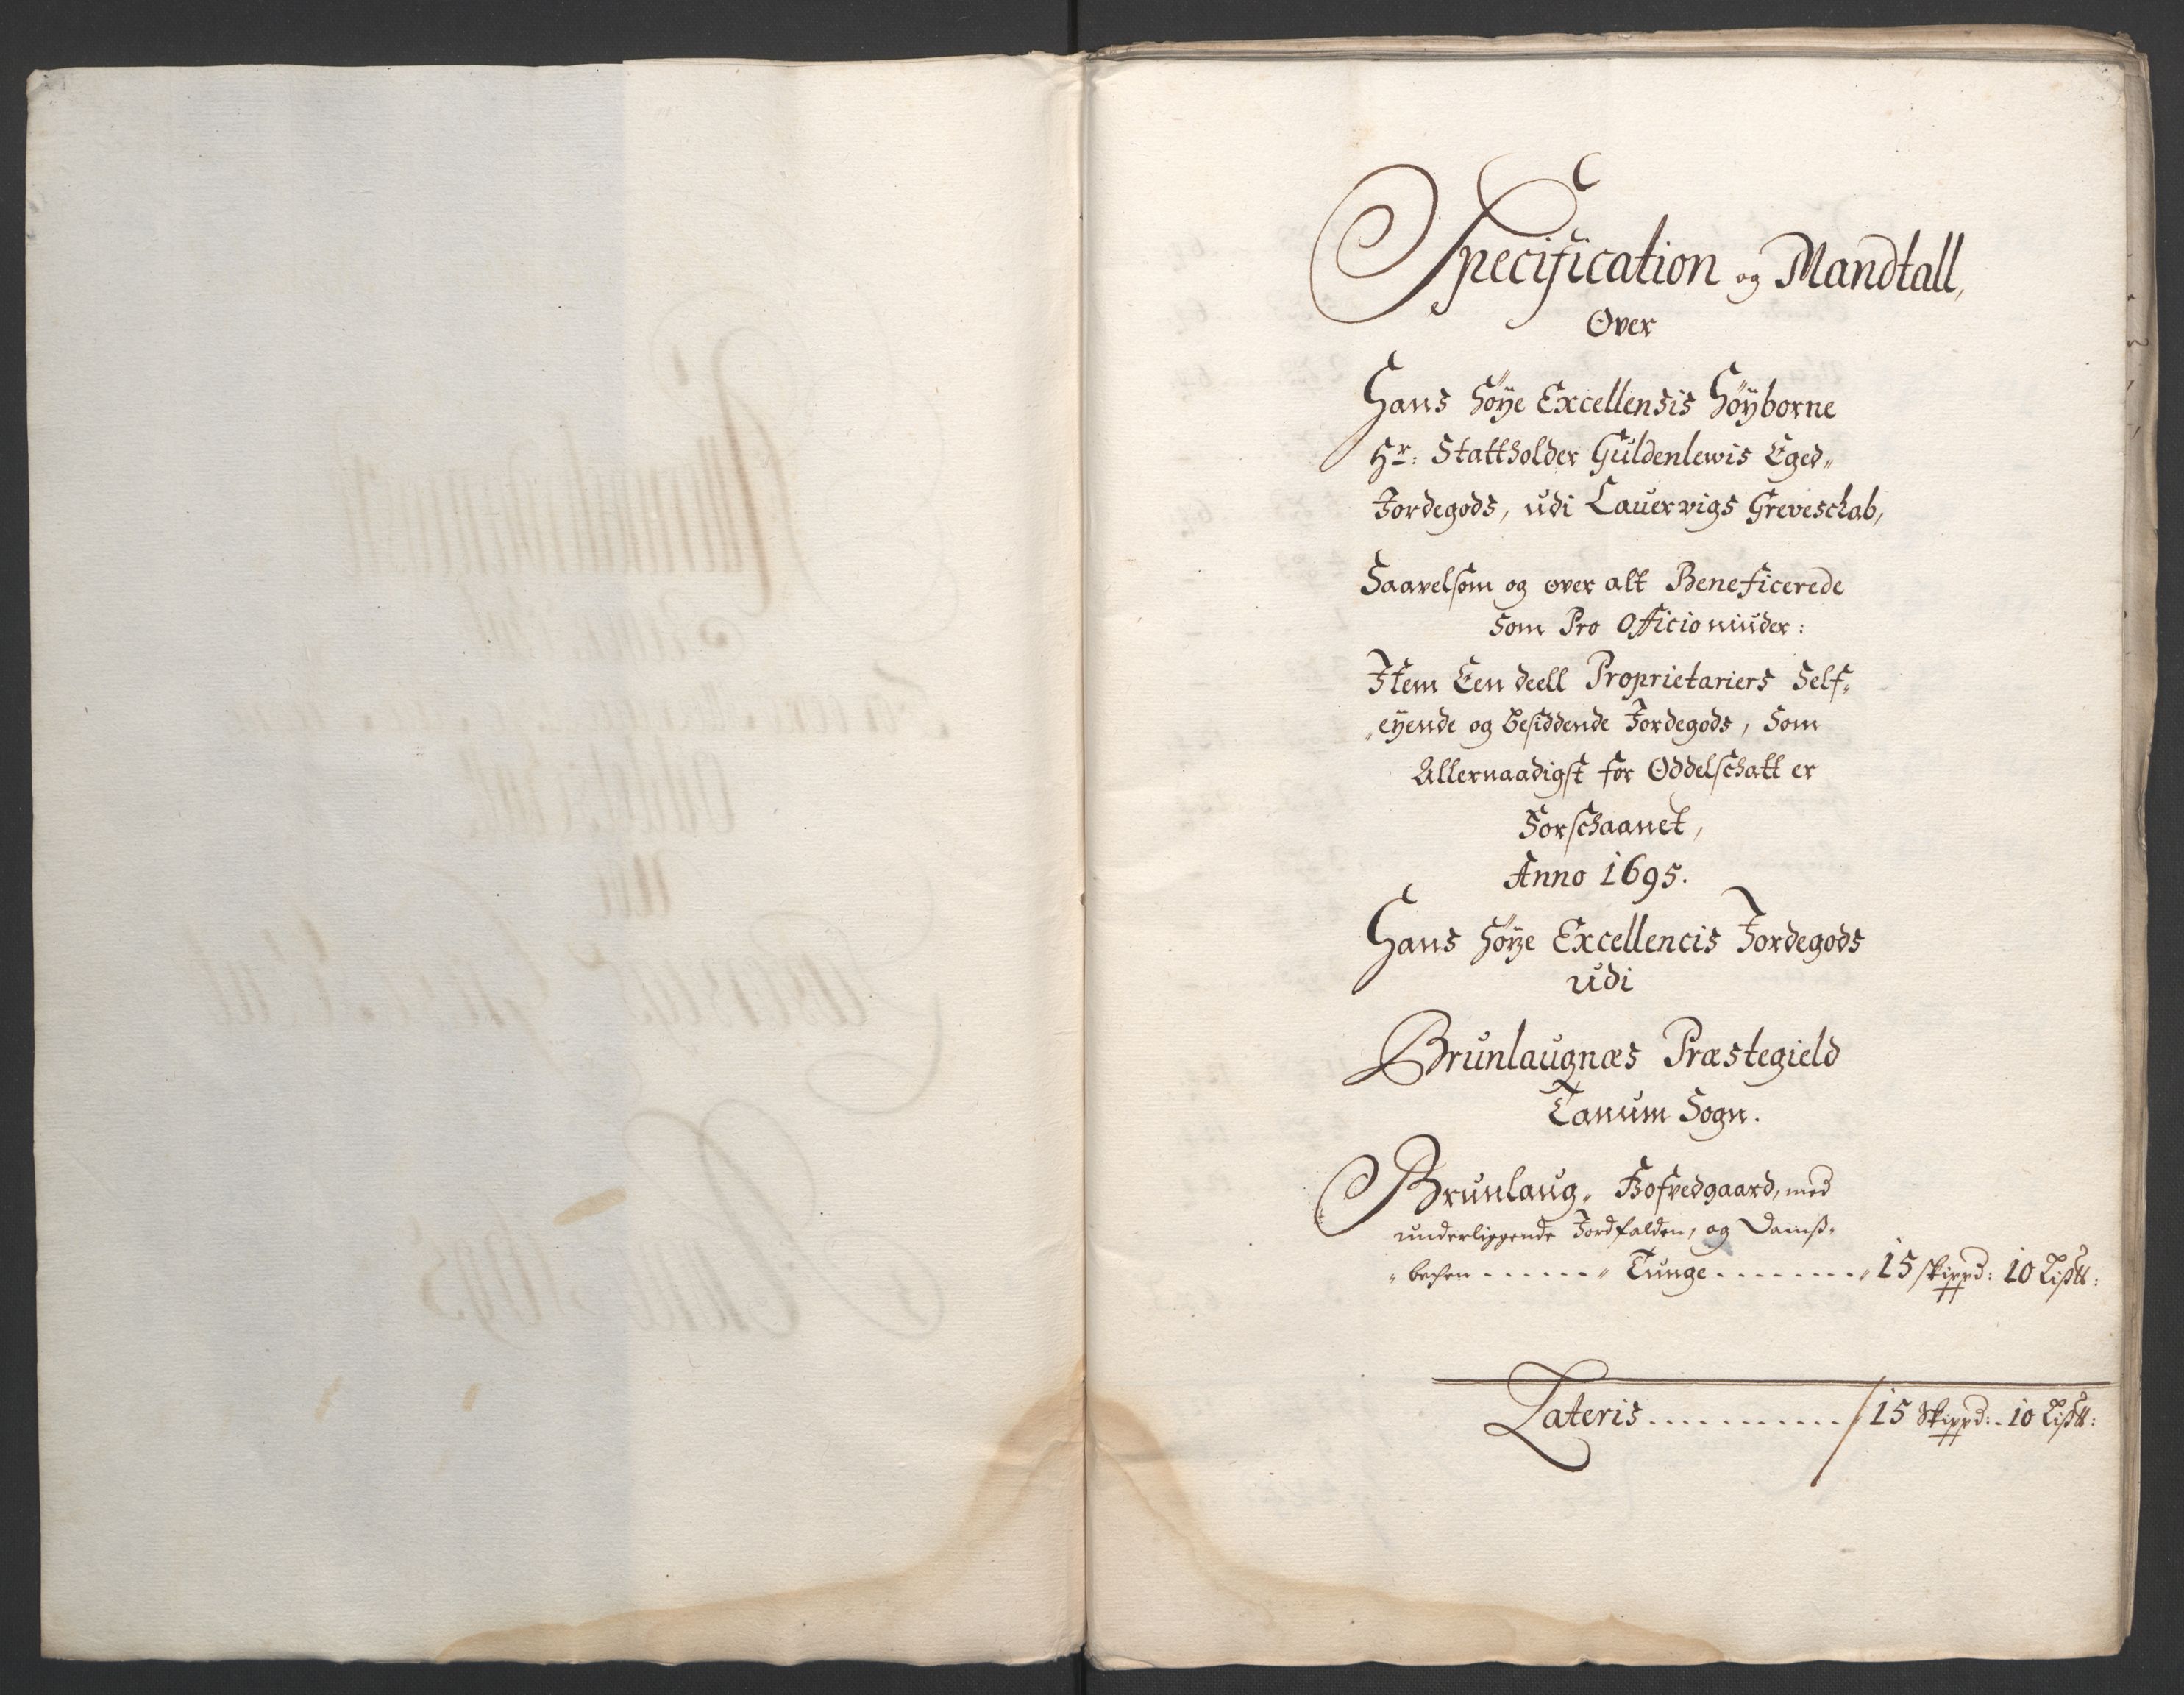 Specification og Mandtall,
Over
Hans Höÿe Excellensis Höÿborne
Hr: Stattholder Güldenlewis Eged„
Jordegods, udi Lauervigs Greveschab,
Saavelsom og over alt Beneficerede
som Pro Officio niuder:
Item Een deell Proprietariers Self„
„eÿende og besiddende Jordegods, som
Allernaadigst for Oddelschatt er
Forschaanet,
Anno 1695.
Hans Höÿe Excellencis Jordegods
udi
Brunlaugnæs Præstegield
Tanum Sogn.
Brunlaug„ Hofvedgaard, med
underliggende Jordfalden, og Damß„
„bechen ...... „ Tunge ....... „ 15 skippd: 10 Lißtt:
Lateris .......... 15 Skippd:. 10 Lißtt: